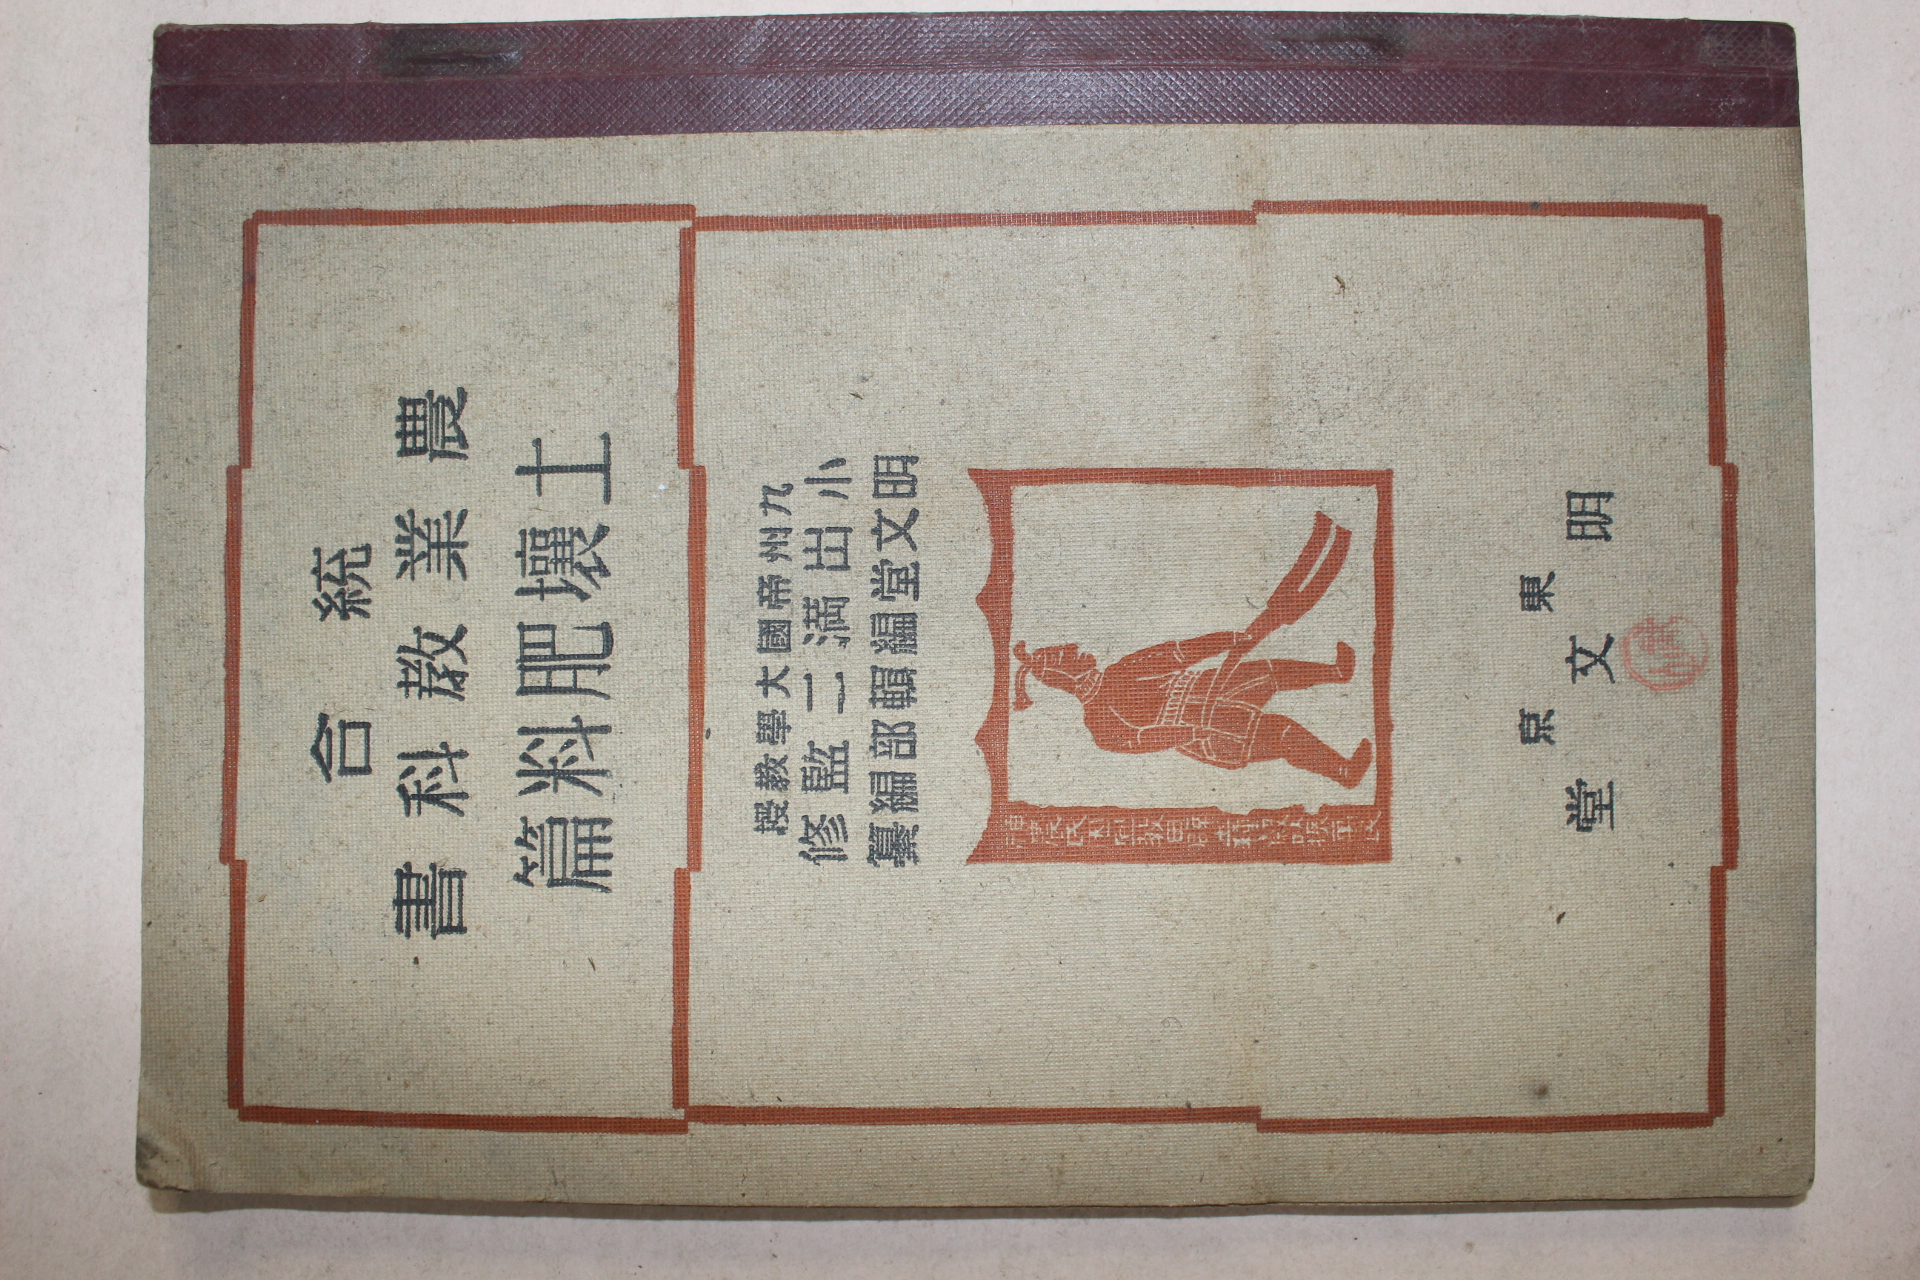 統合
農業教科書
土壤肥料篇
九州帝國大學教授
小出満二監修
明文堂編輯部編纂
東京
明文堂